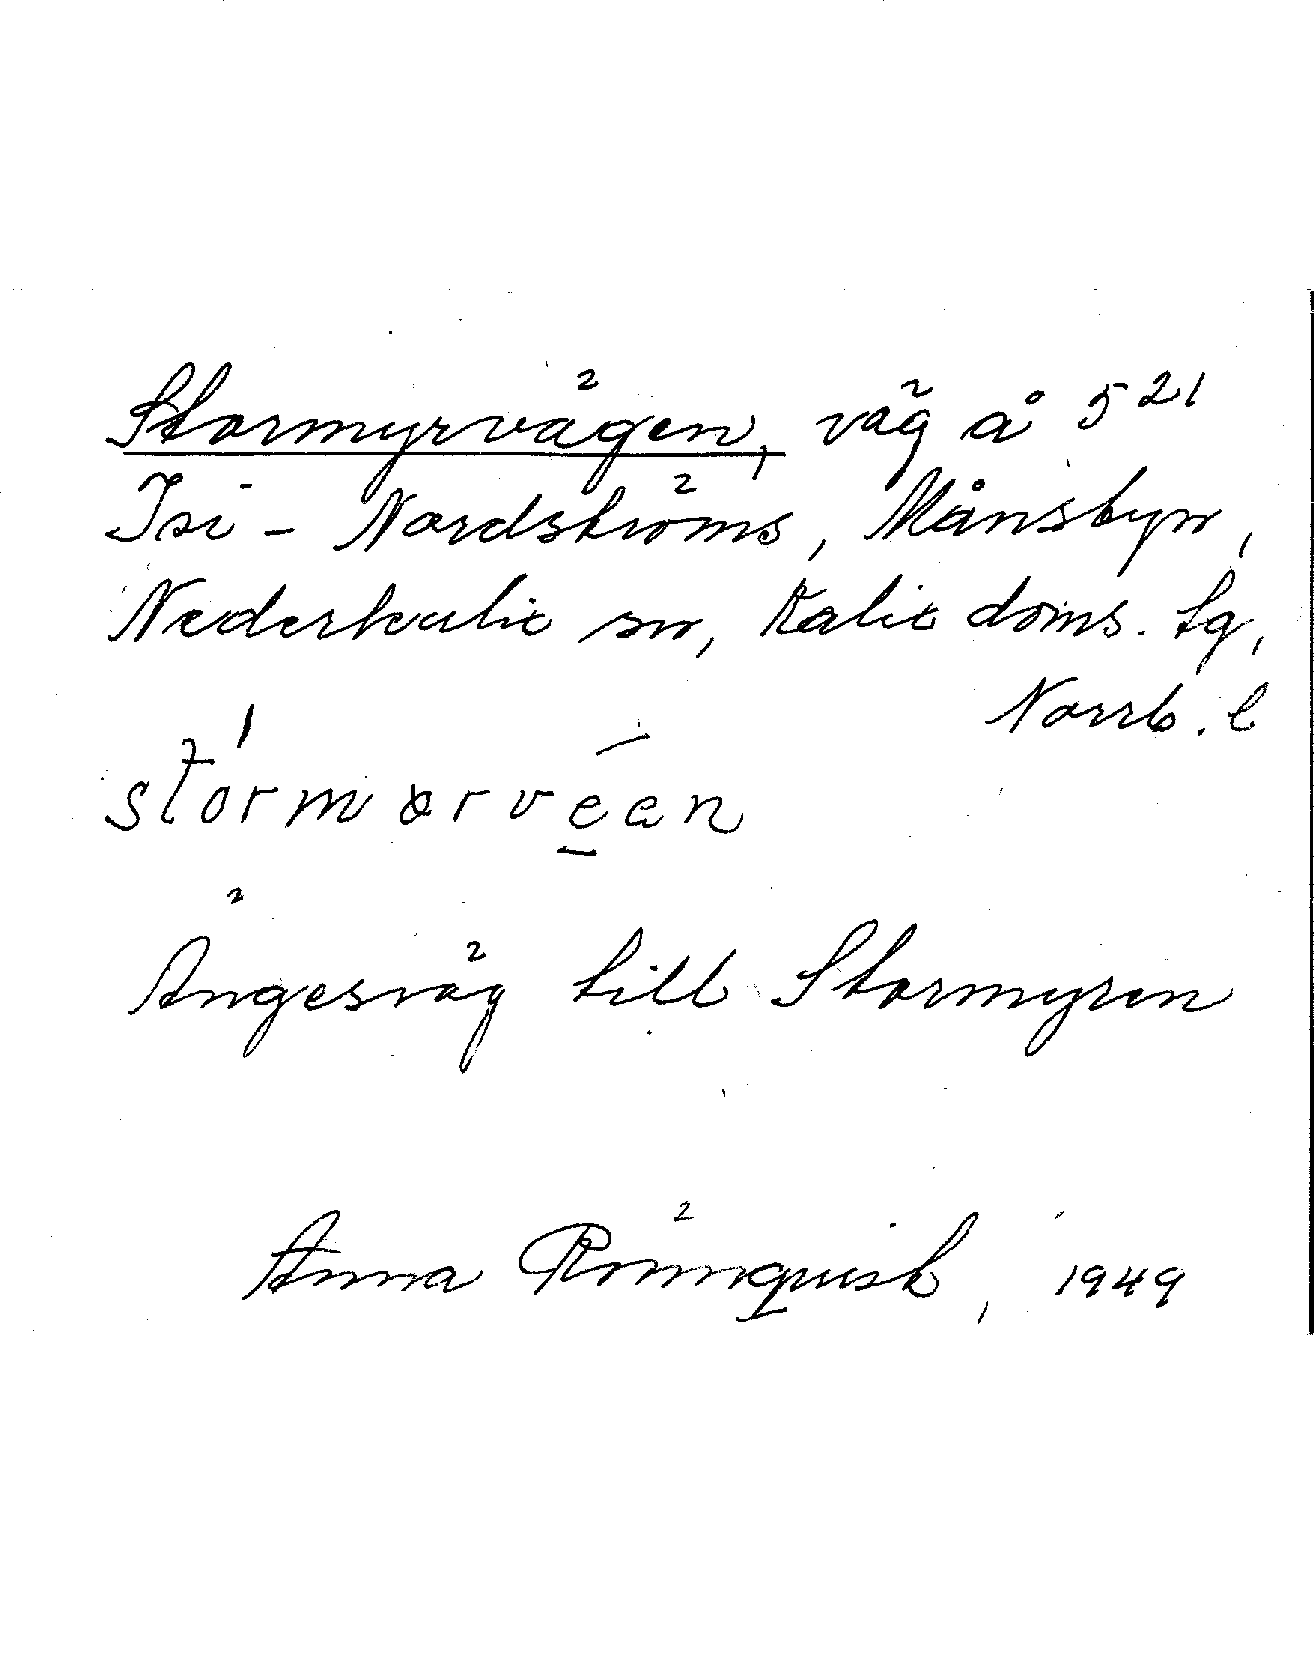 Stormyrvägen, väg å 5²¹
Isi - Nordströms, Månsbyn,
Nederkalix sn, Kalix doms. tg,
Norrb. l
stórmørvéen
Ängesväg till Stormyren
Anna Rönnquist, 1949